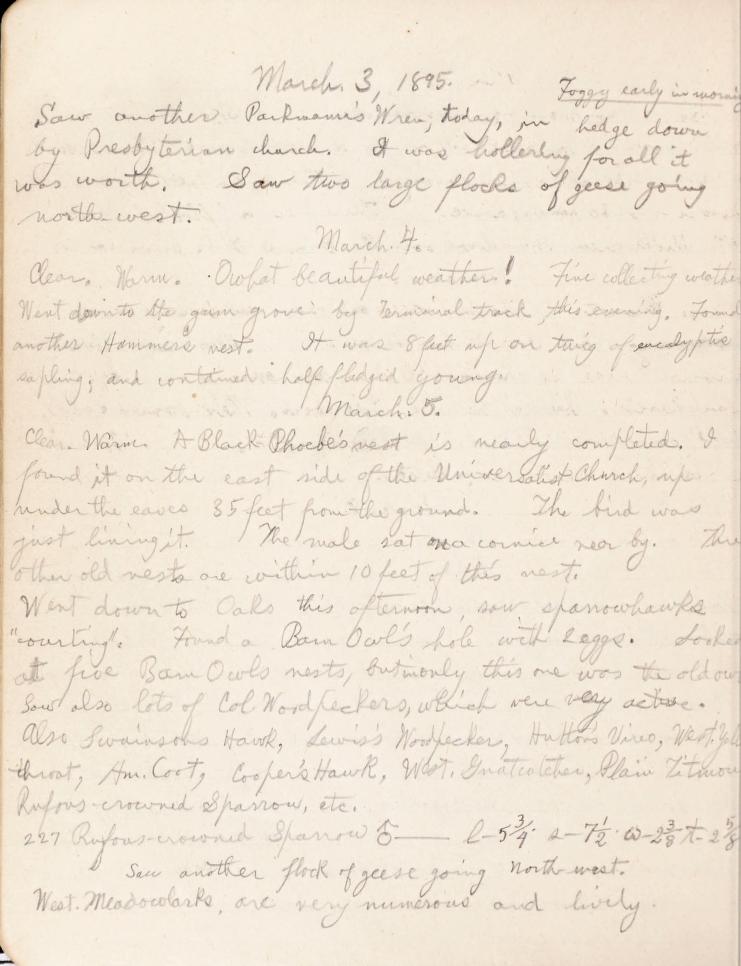 March. 3, 1895.
Foggy early in morning
Saw another Parkman's Wren, today, in hedge down
by Presbyterian church. It was hollering for all it
was worth. Saw two large flocks of geese going
north-west.
March. 4.
Clear. Warm. O what beautiful weather! Fine collecting weather
Went down to the gum grove by Terminal track this evening. Found
another Hammer's nest. It was 8 feet up on twig of eucalyptis
sapling; and contained half fledged young.
March. 5.
Clear. Warm. A Black Phoebe's nest is nearly completed. I
found it on the east side of the Universalist Church, up
under the eaves 35 feet from the ground. The bird was
just lining it. The male sat on a cornice near by. Three
other old nests are within 10 feet of this nest.
Went down to Oaks this afternoon, saw sparrowhawks
"courting". Found a Barn Owl's hole with 2 eggs. Looked
at five Barn Owls nests, but only this one was the old
Saw also lots of Col. Woodpeckers, which were very active.
Also Swainsons Hawk, Lewis's Woodpecker, Hutton's Vireo, West. Yellow
throat, Am. Coot, Cooper's Hawk, West. Gnatcatcher, Plain Titmouse
Rufous-crowned Sparrow, etc.
227 Rufous-crowned Sparrow ♂ — l-5 3/4 s-7 1/2 w-2 3/8 t-2 5/8
Saw another flock of geese going north-west.
West. Meadowlarks, are very numerous and lively.